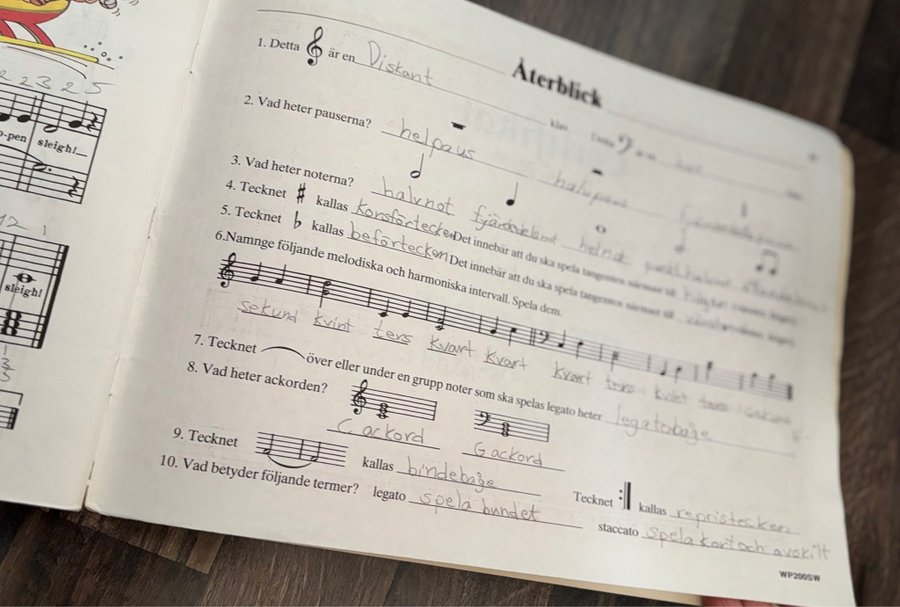 2 2 3 2 5
o-pen sleigh!
12 1
sleigh!
Återblick
1. Detta är en Diskant klav. Detta är en bas
2. Vad heter pauserna? helpaus halvpaus
3. Vad heter noterna? halvnot fjärdedelsnot helnot
4. Tecknet ♯ kallas Korsförtecken Det innebär att du ska spela tangenten närmast till höger
5. Tecknet ♭ kallas beförtecken Det innebär att du ska spela tangenten närmast till
6.Namnge följande melodiska och harmoniska intervall. Spela dem.
sekund kvint ters kvart kvart kvart ters kvint ters
7. Tecknet över eller under en grupp noter som ska spelas legato heter legatobåge
8. Vad heter ackorden?
C ackord G ackord
9. Tecknet kallas bindebåge Tecknet kallas repristecken
10. Vad betyder följande termer? legato spela bundet staccato spela kort och avskilt
WP200SW